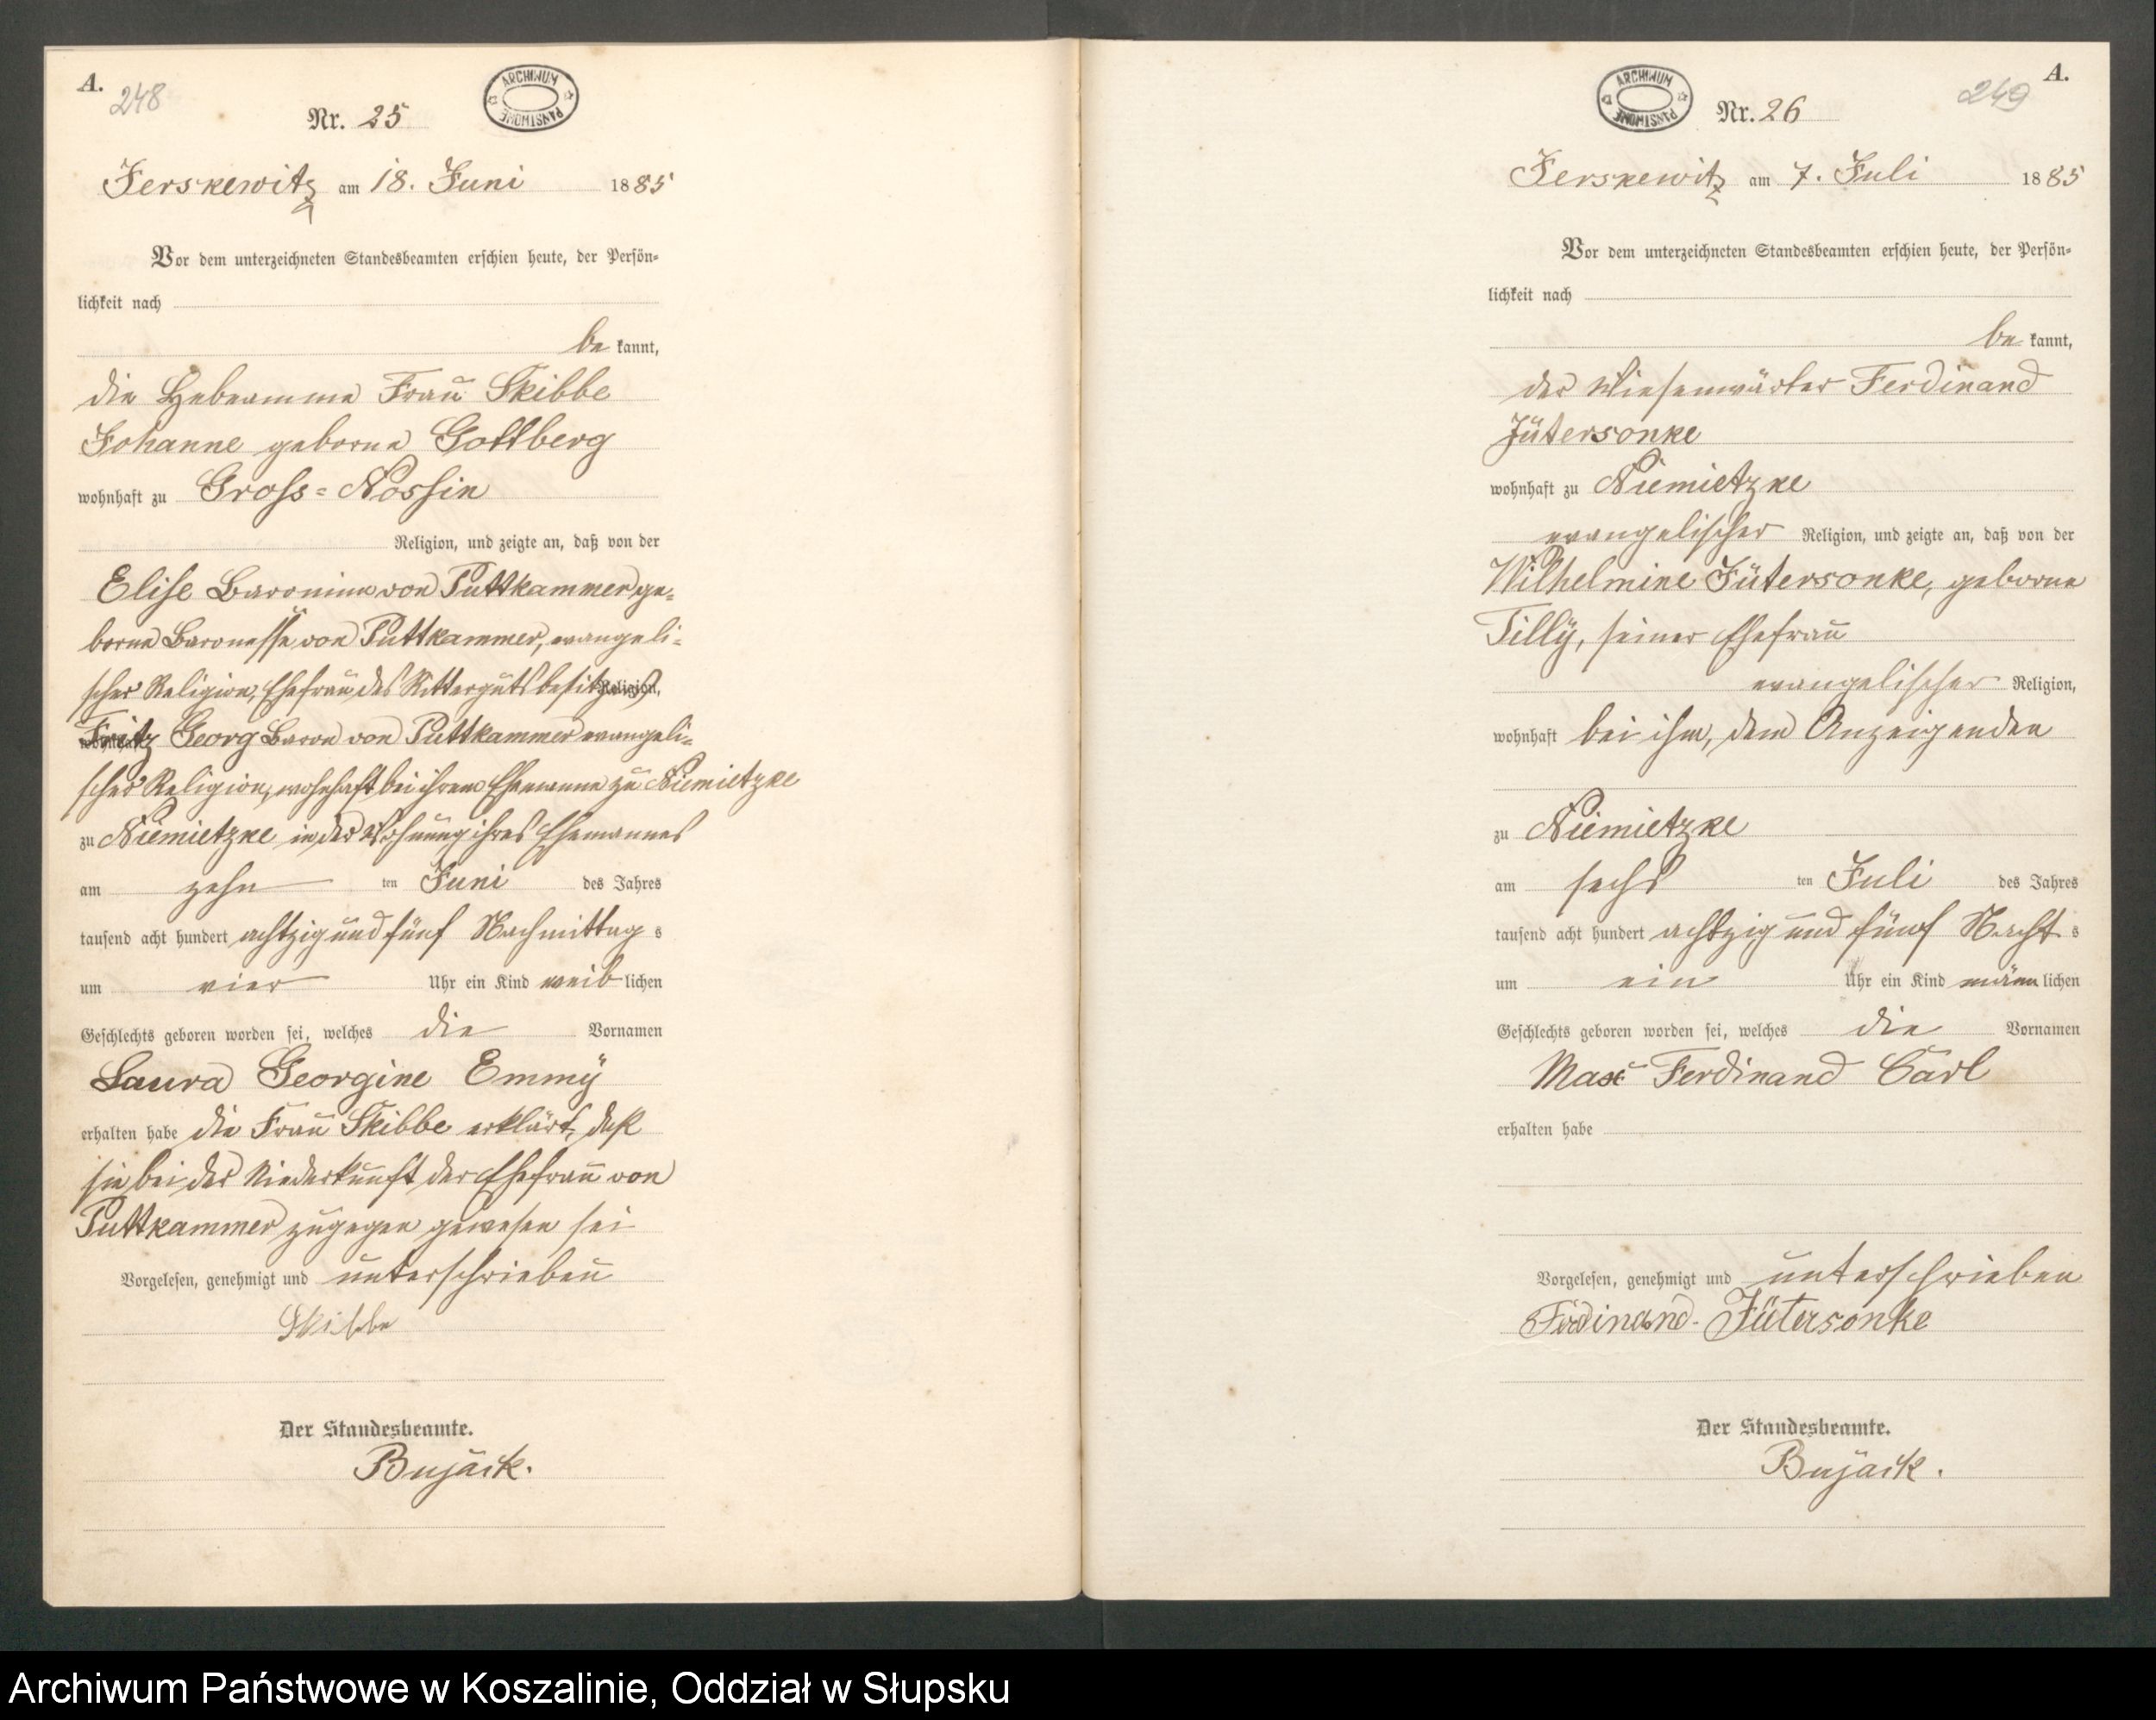 A.
248
Nr. 25
ARCHIWUM PAŃSTWOWE
Jerskewitz am 18. Juni 1885
Vor dem unterzeichneten Standesbeamten erschien heute, der Persön-
lichkeit nach
be kannt,
die Hebeamme Frau Skibbe
Johanne geborne Gottberg
wohnhaft zu Gross-Nossin
Religion, und zeigte an, daß von der
Elise Baronin von Puttkammer ge-
borne Baronesse von Puttkammer, evangeli-
scher Religion, Ehefrau des Rittergutsbesitzers Religion,
Fritz Georg Baron von Puttkammer evangeli-
scher Religion, wohnhaft bei ihrem Ehemanne zu Niemietzke
zu Niemietzke in der Wohnung ihres Ehemannes
am zehn ten Juni des Jahres
tausend acht hundert achtzig und fünf Nachmittag s
um vier Uhr ein Kind weib lichen
Geschlechts geboren worden sei, welches die Vornamen
Laura Georgine Emmy
erhalten habe die Frau Skibbe erklärt, daß
sie bei der Niederkunft der Ehefrau von
Puttkammer zugegen gewesen sei
Vorgelesen, genehmigt und unterschrieben
Skibbe
Der Standesbeamte.
Bujack.
A.
249
ARCHIWUM PAŃSTWOWE
Nr. 26
Jerskewitz am 7. Juli 1885
Vor dem unterzeichneten Standesbeamten erschien heute, der Persön-
lichkeit nach
be kannt,
der Wiesenwärter Ferdinand
Jütersonke
wohnhaft zu Niemietzke
evangelischer Religion, und zeigte an, daß von der
Wilhelmine Jütersonke, geborne
Tilly, seiner Ehefrau
evangelischer Religion,
wohnhaft bei ihm, dem Anzeigenden
zu Niemietzke
am sechs ten Juli des Jahres
tausend acht hundert achtzig und fünf Nacht s
um ein Uhr ein Kind männ lichen
Geschlechts geboren worden sei, welches die Vornamen
Max Ferdinand Carl
erhalten habe
Vorgelesen, genehmigt und unterschrieben
Ferdinand Jütersonke
Der Standesbeamte.
Bujack.
Archiwum Państwowe w Koszalinie, Oddział w Słupsku